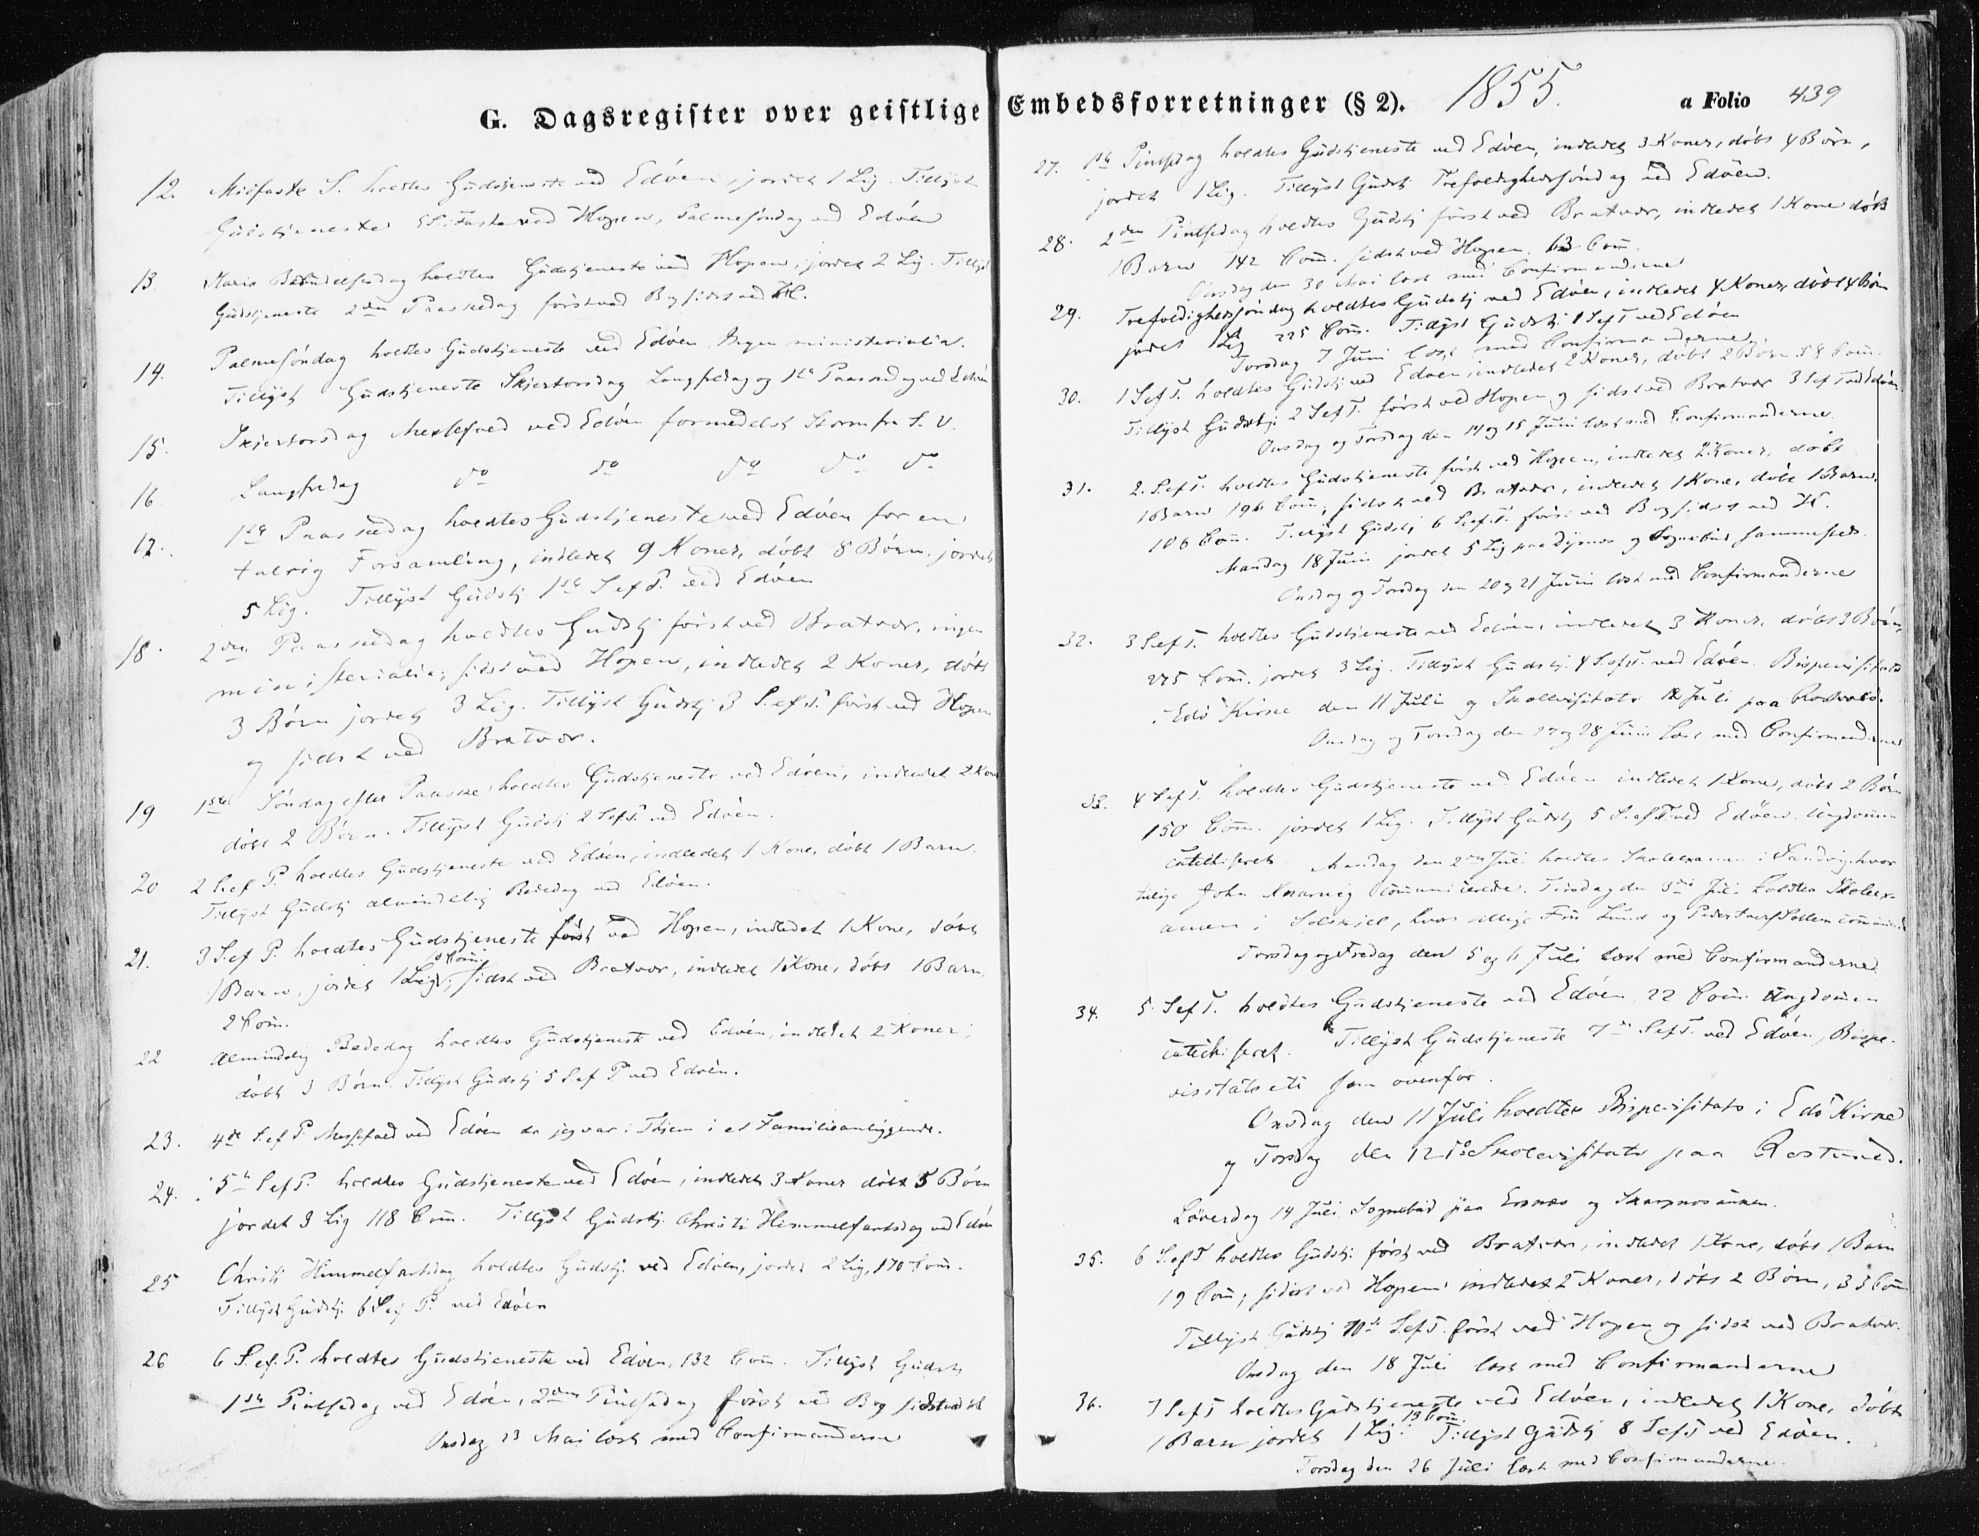 G. Dagsregister over geistlige Embedsforretninger (§ 2). 1855. a Folio 439
12. Midfaste S. holdtes Gudstjeneste ved Edöen, jordet 1 Lig. Tillyst
Gudstjeneste ved Hopen, Palmesöndag ved Edöen
13. Mariæ Bebudelsesdag holdtes Gudstjeneste ved Hopen, jordet 2 Lig. Tillyst
Gudstjeneste 2den Paaskedag först ved B og sidst ved H.
14. Palmesöndag holdtes Gudstjeneste ved Edöen Ingen ministerialia.
Tillyst Gudstjeneste Skjertorsdag Langfredag og 1ste Paaskedag ved Edöen
15. Skjertorsdag Messefald ved Edöen formedelst Storm fra S. V.
16 Langfredag do do do do do
17. 1ste Paaskedag holdtes Gudstjeneste ved Edöen for en
talrig Forsamling, indledet 9 Koner, döbt 8 Börn, jordet
5 Lig. Tillyst Gudstj 1ste S. ef P. ved Edöen
18. 2den Paaskedag holdtes Gudstj först ved Bratvær, ingen
ministerialia; sidst ved Hopen, indledet 2 Koner, döbt
3 Börn jordet 3 Lig. Tillyst Gudstj 3 S. ef P. först ved Hopen
og sidst ved Bratvær.
19 1ste Söndag efter Paaske holdtes Gudstjeneste ved Edöen, indledet 2 Koner
döbt 2 Börn. Tillyst Gudstj 2 S ef P ved Edöen.
20 2 S. ef P. holdtes Gudstjeneste ved Edöen, indledet 1 Kone, döbt 1 Barn.
Tillyst Gudstj almindelig Bededag ved Edöen.
21. 3 S. ef P. holdtes Gudstjeneste först ved Hopen, indledet 1 Kone, döbt
1 Barn, jordet 1 Lig, Com; sidst ved Bratvær, indledet 1 Kone, döbt 1 Barn,
2 Com.
22 Almindelig Bededag holdtes Gudstjeneste ved Edöen, indledet 2 Koner,
döbt 3 Börn. Tillyst Gudstj 5 S ef P ved Edöen.
23. 4de S. ef P. Messefald ved Edöen da jeg var i Thjem i et Familieanliggende.
24. 5te S ef P. holdtes Gudstjeneste ved Edöen, indledet 3 Koner döbt 5 Börn
jordet 3 Lig 118 Com. Tillyst Gudstj. Christi Himmelfartsdag ved Edöen
25 Christi Himmelfartsdag holdtes Gudstj. ved Edöen, jordet 2 Lig, 170 Com.
Tillyst Gudstj. 6 S ef P. ved Edöen
26 6 S. ef. P. holdtes Gudstjeneste ved Edöen, 132 Com. Tillyst Gudstj
1ste Pintsedag ved Edöen, 2den Pintsedag först ved B og sidst ved H
Onsdag 23 Mai læst med Confirmanderne
27. 1ste Pintsedag holdtes Gudstjeneste ved Edöen, indledet 3 Koner, döbt 4 Börn,
jordet 1 Lig. Tillyst Gudstj Trefoldighedssöndag ved Edöen.
28. 2den Pintsedag holdtes Gudstj först ved Bratvær, indledet 1 Kone döbt
1 Barn 142 Com. sidst ved Hopen 63 Com.
Onsdag den 30 Mai læst med Confirmanderne
29. Trefoldighedssöndag holdtes Gudstj ved Edöen, indledet 4 Koner, döbt 4 Börn
jordet 1 Lig 225 Com. Tillyst Gudstj. 1 S ef T ved Edöen
Torsdag 7 Juni læst med Confirmanderne.
30. 1 S ef T. holdtes Gudstj ved Edöen, indledet 2 Koner, döbt 2 Börn 58 Com.
Tillyst Gudstj: 2 S ef T. först ved Hopen og sidst ved Bratvær 3 S ef T ved Edöen
Onsdag og Torsdag den 14 og 15 Juni læst med Confirmanderne.
31. 2. S. ef T. holdtes Gudstjeneste först ved Hopen, indledet 2 Koner, döbt
1 Barn 196 Com; sidst ved Bratvær, indledet 1 Kone, döbt 1 Barn,
106 Com. Tillyst Gudstj 6 S. ef T. först ved B og sidst ved H.
Mandag 18 Juni jordet 5 Lig paa og Sognebud sammesteds.
Onsdag og Torsdag den 20 og 21 Juni læst med Confirmanderne
32. 3 S. ef T. holdtes Gudstjeneste ved Edöen, indledet 3 Koner, döbt 3 Börn,
275 Com. jordet 3 Lig. Tillyst Gudstj. 4 S. ef T. ved Edöen. Bispevisitats
i Edö Kirke den 11 Juli og Skolevisitats 12 Juli paa
Onsdag og Torsdag den 27 og 28 Juni læst med Confirmanderne
33. 4 S ef T. holdtes Gudstjeneste ved Edöen indledet 1 Kone, döbt 2 Börn
150 Com. jordet 1 Lig. Tillyst Gudstj 5 S. ef T ved Edöen. Ungdommen
catechiseret. Mandag den 2den Juli holdtes Skoleexamen i Sandvig, hvor
tillige John communicerede. Tirsdag den 3die Juli holdtes Skoleex-
amen i Solskjel, hvor tillige Lund og
Torsdag og Fredag den 5 og 6 Juli læst med Confirmanderne.
34. 5. S ef T. holdtes Gudstjeneste ved Edöen 22 Com. Ungdommen
catechiseret. Tillyst Gudstjeneste 7de S ef T. ved Edöen, Bispe-
visitats etc som ovenfor.
Onsdag den 11 Juli holdtes Bispevisitats i Edö Kirke
og Torsdag den 12 do Skolevisitats paa
Löverdag 14 Juli Sognebud paa og
35. 6 S. ef T holdtes Gudstj. först ved Bratvær, indledet 1 Kone, döbt 1 Barn
19 Com; sidst ved Hopen indledet 2 Koner, döbt 2 Börn, 33 Com
Tillyst Gudstj 10de S ef T. först ved Hopen og sidst ved Bratvær.
Onsdag den 18 Juli læst med Confirmanderne
36. 7 S ef T holdtes Gudstjeneste ved Edöen, indledet 1 Kone, döbt
1 Barn jordet 1 Lig. 13 Com. Tillyst Gudstj 8 S ef T ved Edöen.
Torsdag den 26 Juli læst med Confirmanderne.